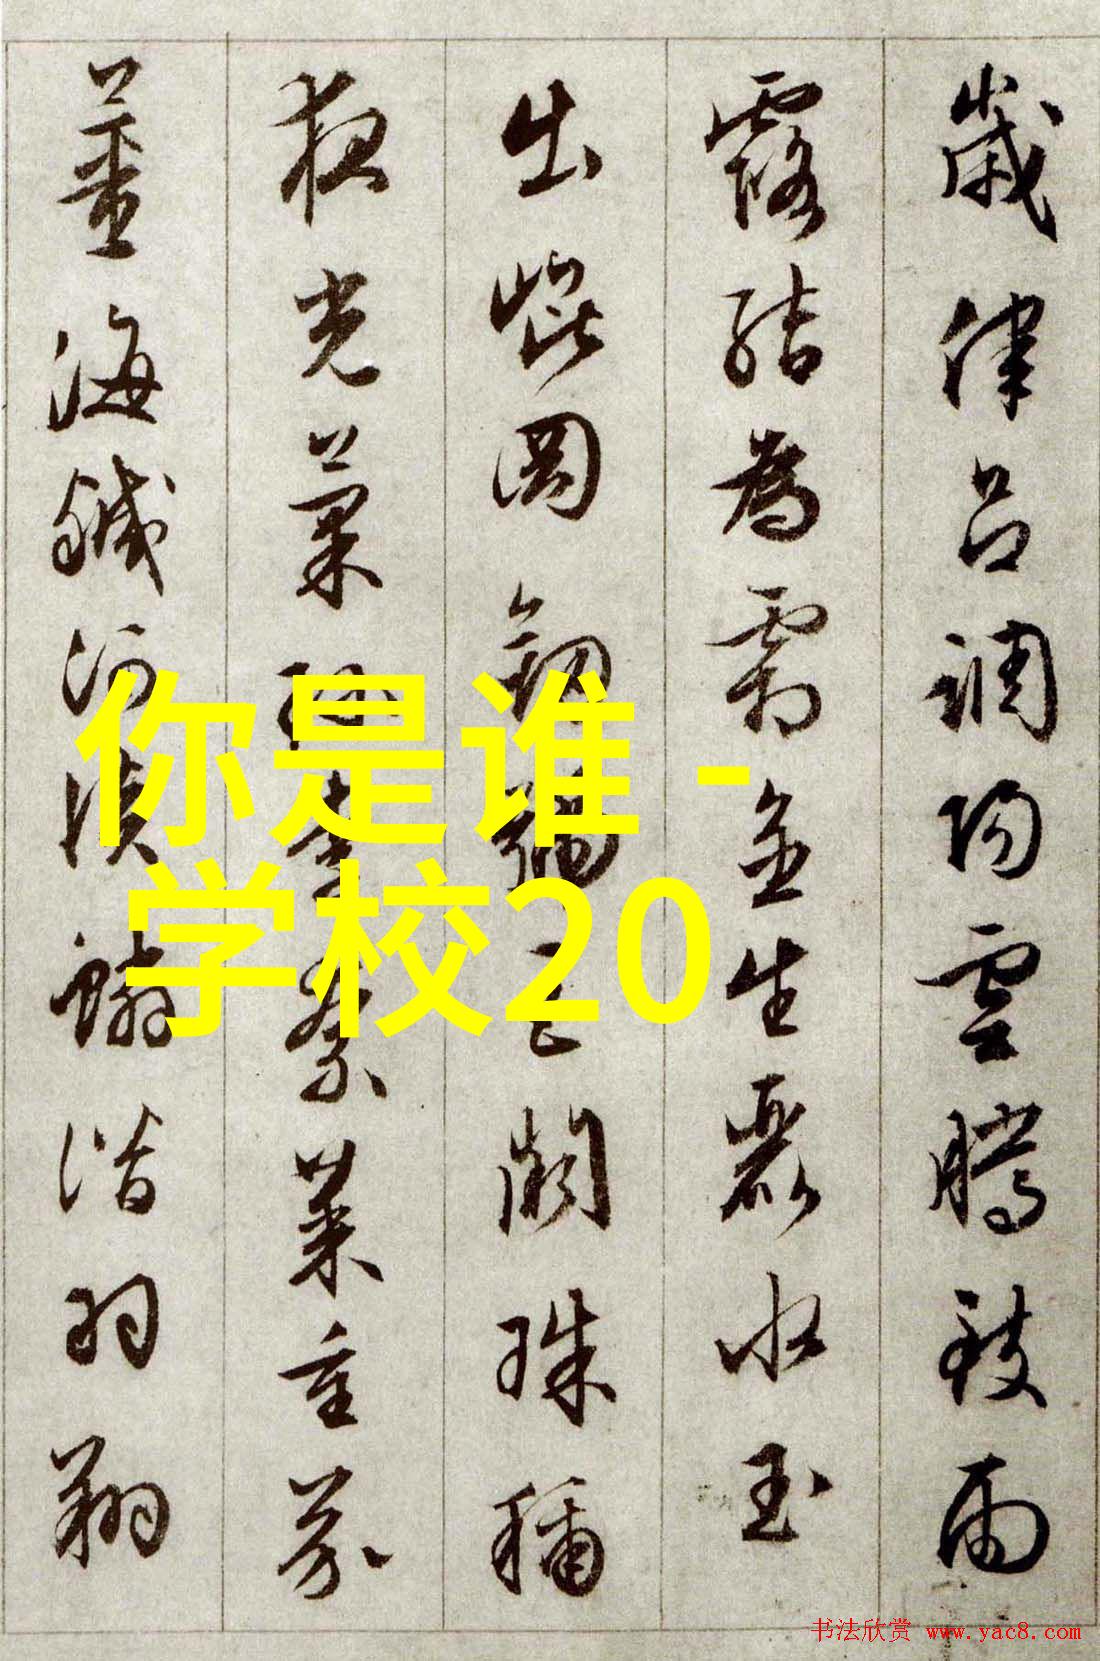 歲律呂調陽雲騰致雨
露結為霜金生麗水玉
出崐岡劒號巨闕珠稱
夜光菓珍李柰菜重芥
薑海鹹河淡鱗潛羽翔
你是谁 -
学校20
书法欣赏 www.yac8.com